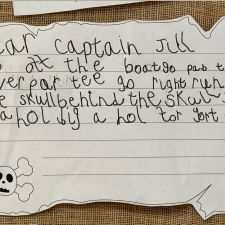 ear captain Jill
at the boat go pas t
ver par tee go right run
e skull behind the skul
a hol big a hol for gort